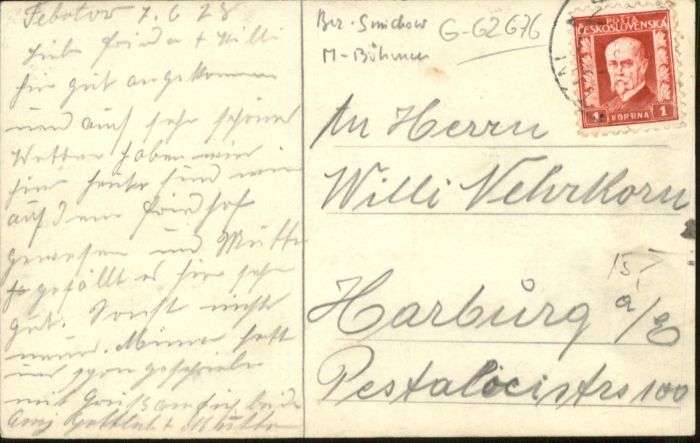 7.6.28
Liebe Frieda + Willi
hier gut angekommen
und auch sehr schönes
Wetter haben wir
hier heute sind wir
auf dem Friedhof
gewesen und Mutter
gefällt es hier sehr
gut. Sonst nichts
neues. Minna hatt
uns schon geschrieben
mit Gruß an sie beide
Mutter
M-Böhmen
G-G2676
POSTA
ČESKOSLOVENSKÁ
1 KORUNA 1
An Herrn
Willi Vehrkorn
Harburg a/E
Pestalocistrs 100
15